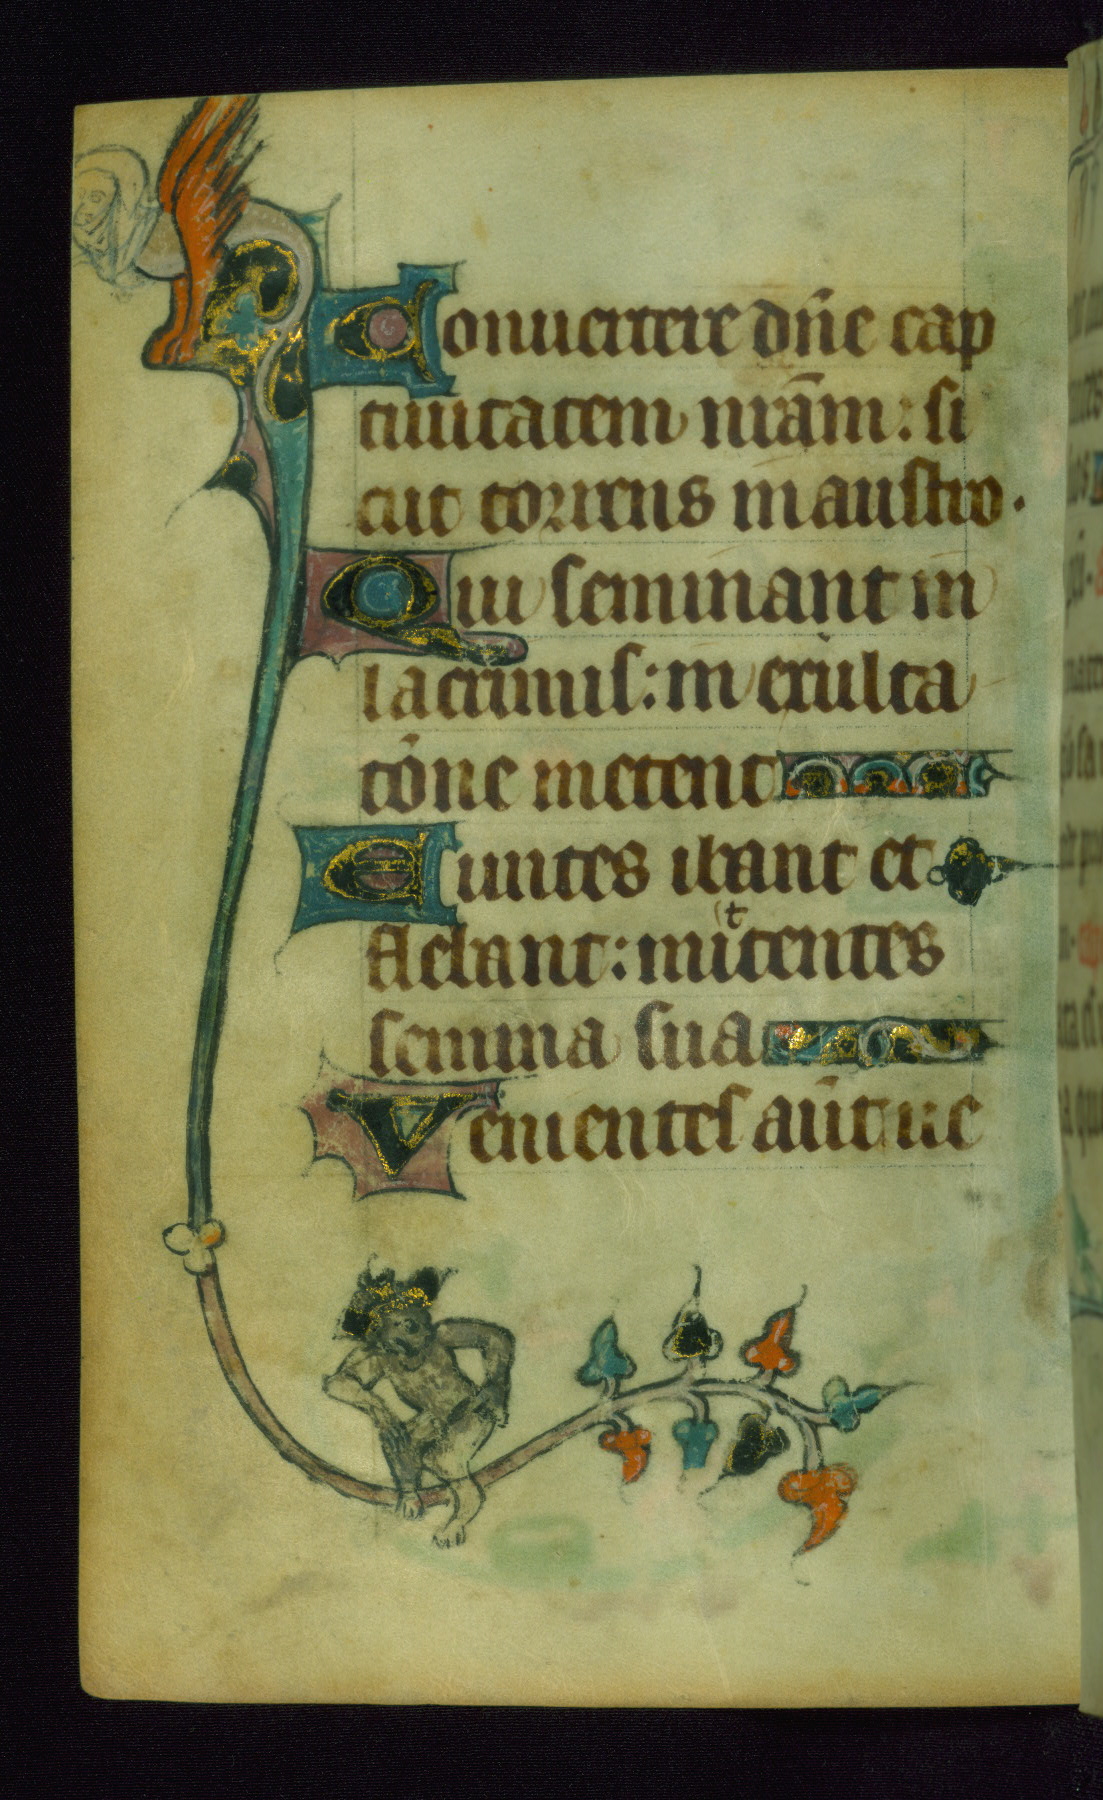 Conuertere dñe cap
tiuitatem nr̃am: si
cut torrens in austro.
Qui seminant in
lacrimis: in exulta
tõne metent
Euntes ibant et
flebant: mittentes
semina sua
Venientes aut̃ ue